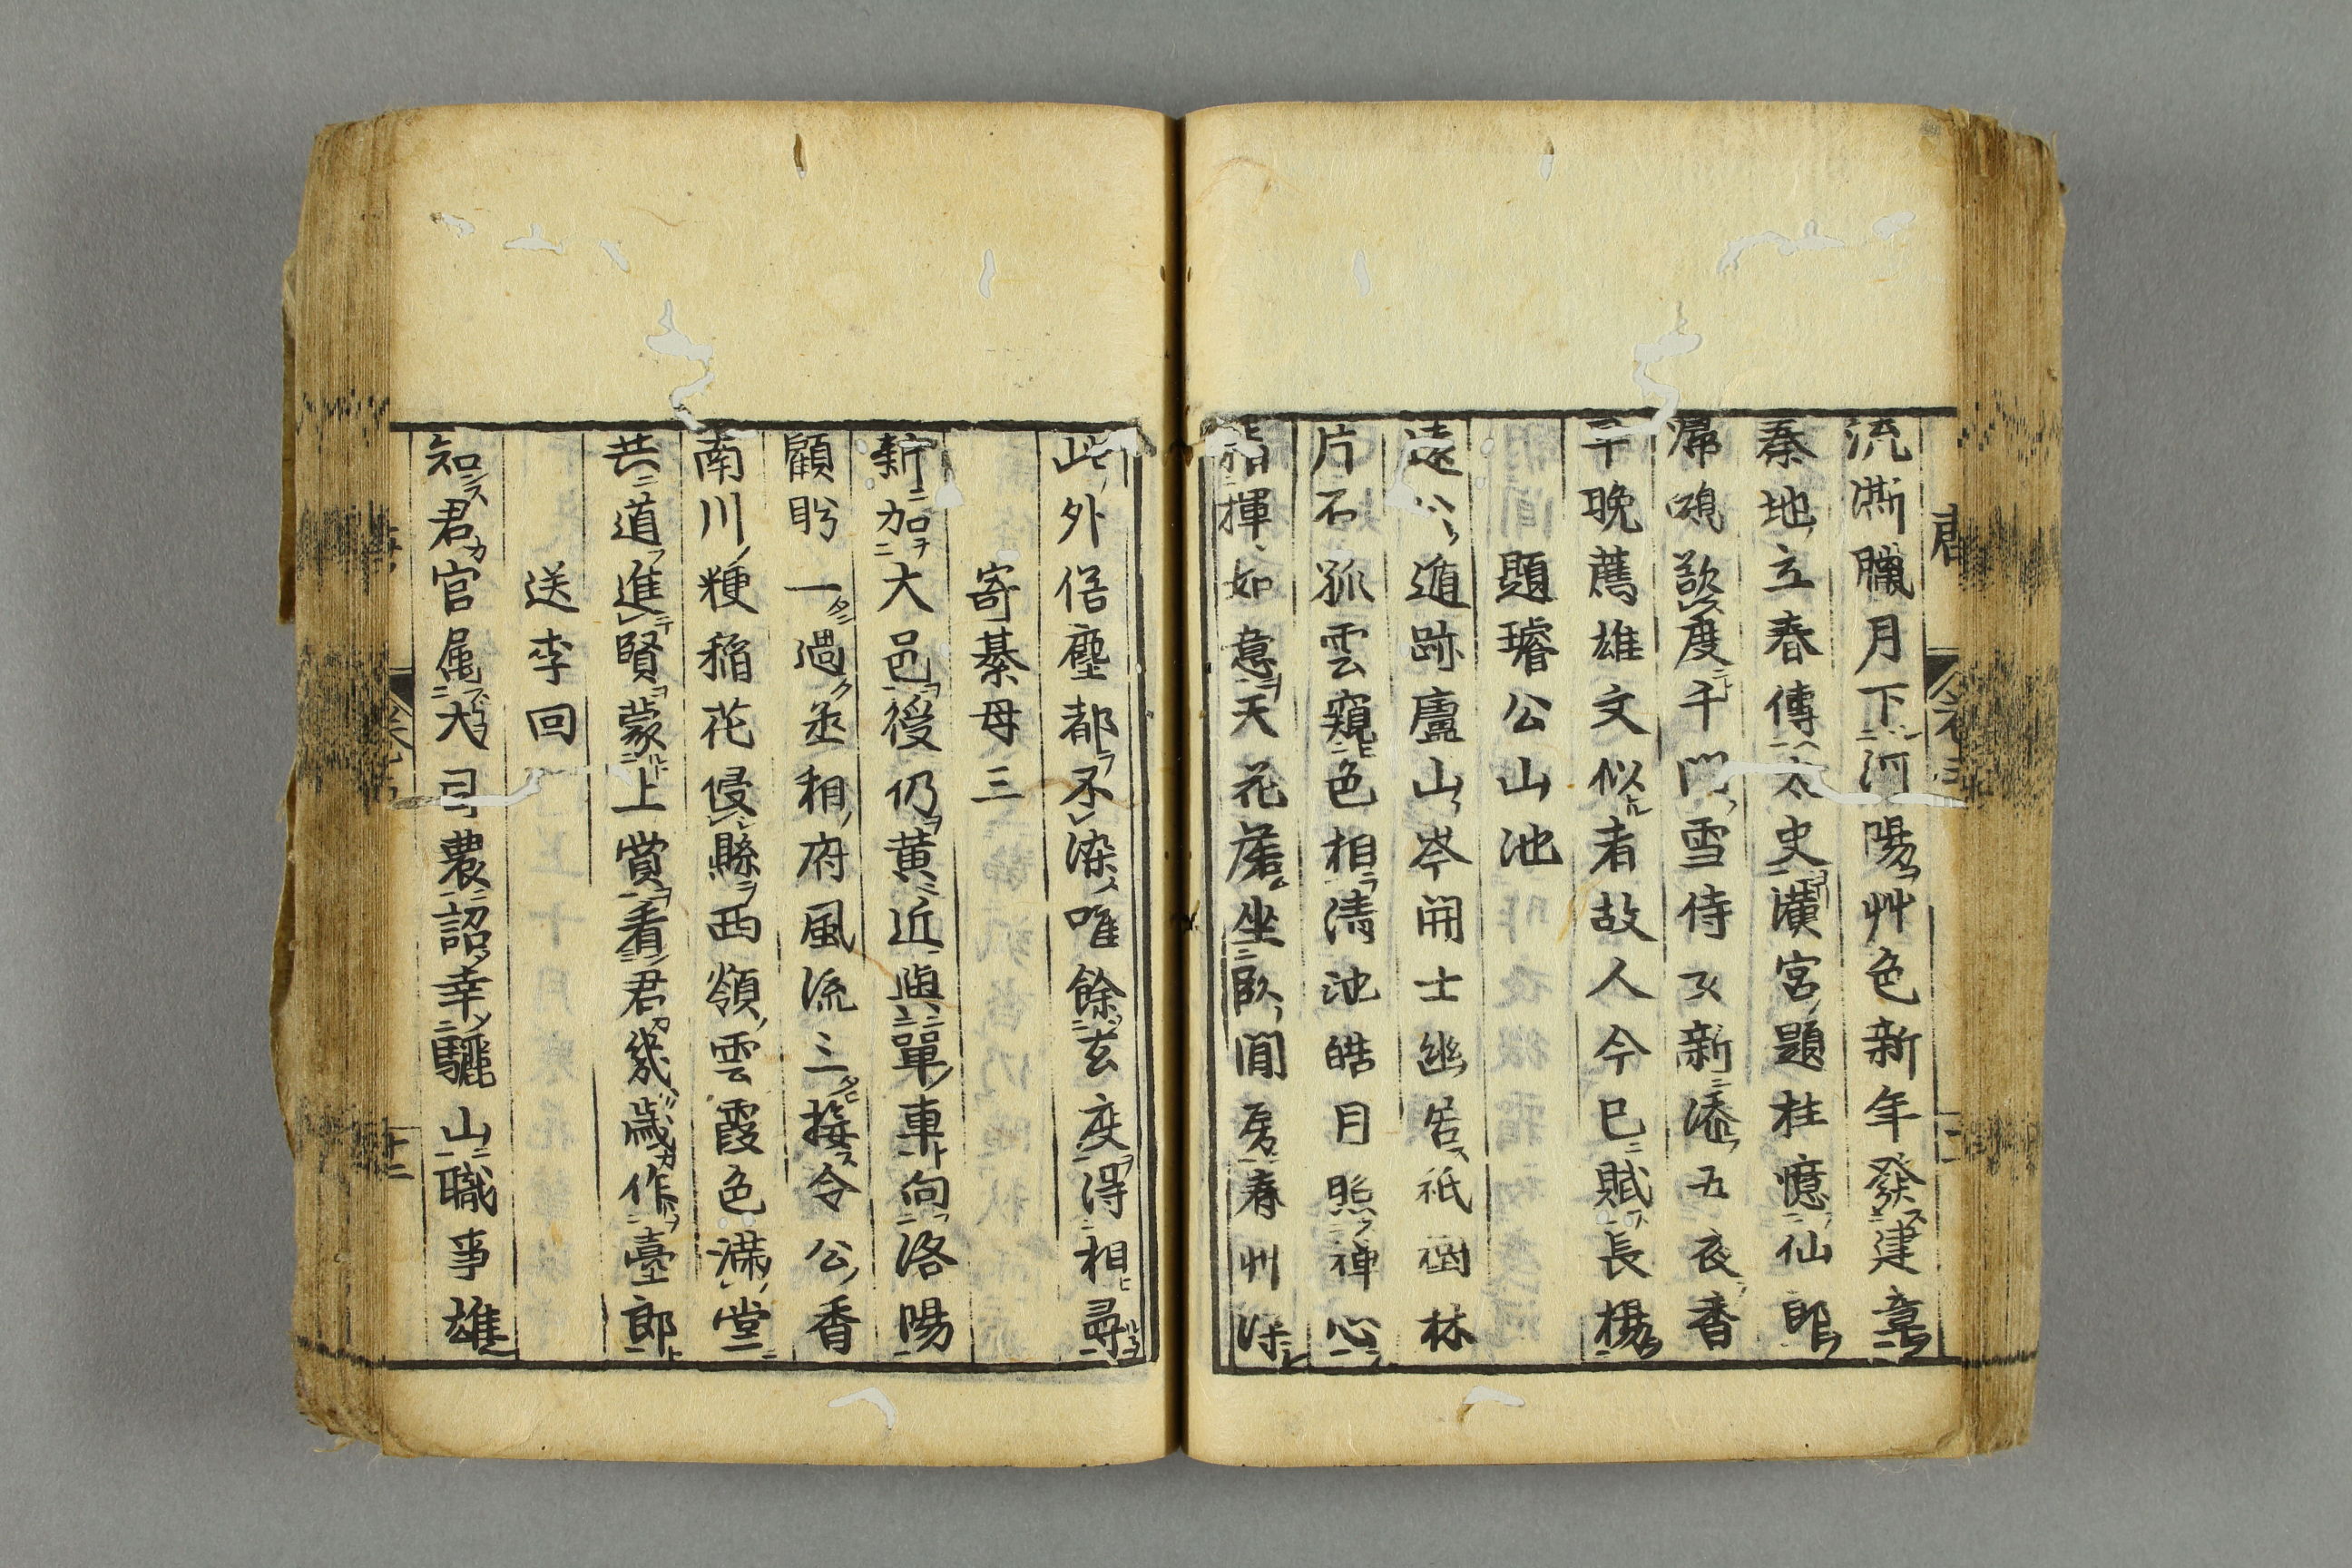 流澌臘月下河陽艸色新年發建章
秦地立春傳太史漢宮題柱憶仙郎
歸鴻欲度千門雪侍女新添五夜香
早晚薦雄文似者故人今已賦長楊
題璿公山池
遠公遁跡廬山岑開士幽居祇樹林
片石孤雲窺色相清池皓月照禪心
指揮如意天花落坐臥閒房春艸深
此外俗塵都不染唯餘玄度得相尋
寄綦母三
新加大邑綬仍黃近與單車向洛陽
顧盻一過丞相府風流三接令公香
南川粳稲花侵縣西嶺雲霞色滿堂
共道進賢蒙上賞看君幾歲作臺郎
送李回
知君官属大司農詔幸驪山職事雄
十二